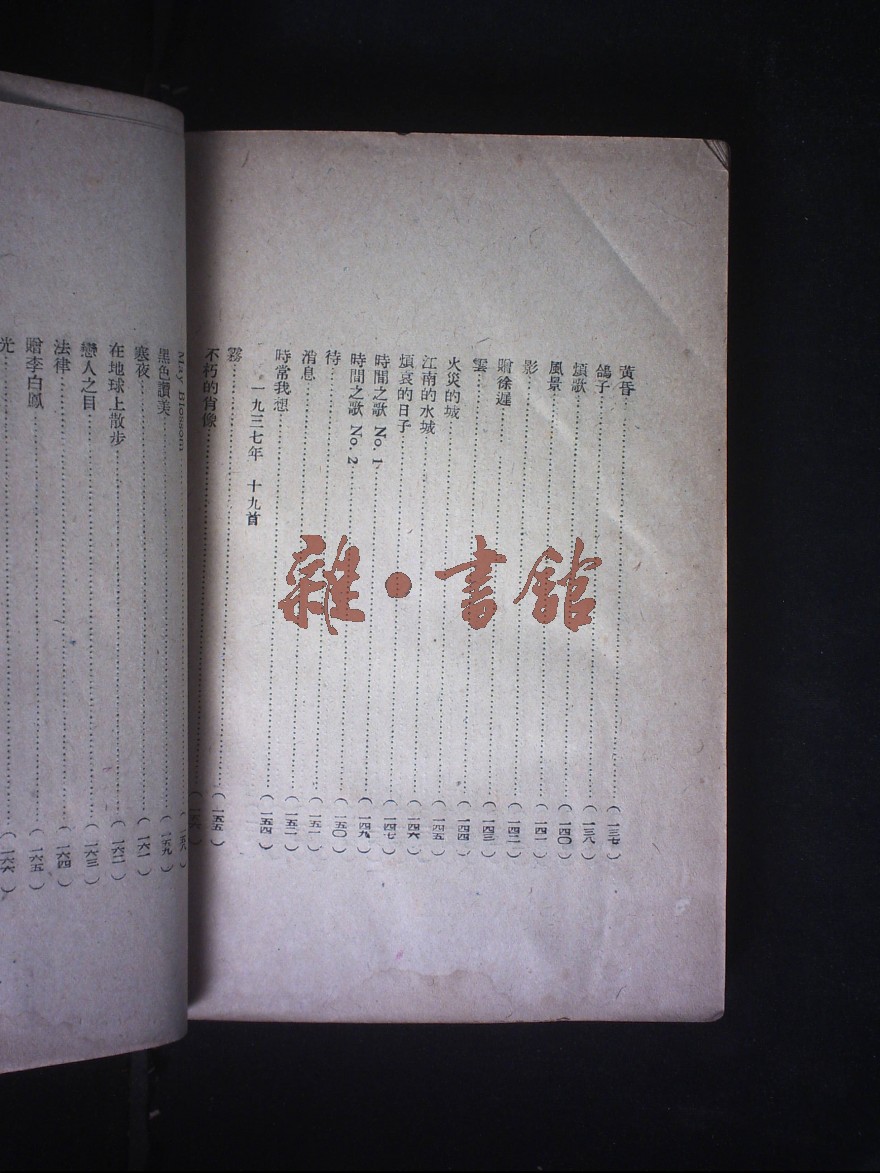 黃昏……（一三七）
鴿子……（一三八）
煩歌……（一四〇）
風景……（一四一）
影……（一四二）
贈徐遲……（一四三）
雲……（一四四）
火災的城……（一四五）
江南的水城……（一四六）
煩哀的日子……（一四七）
時間之歌 No. 1……（一四九）
時間之歌 No. 2……（一五〇）
待……（一五一）
消息……（一五二）
時常我想……（一五四）
一九三七年　十九首
霧……（一五五）
不朽的肖像……
May Blossom……
黑色讚美……（一五九）
寒夜……（一六一）
在地球上散步……（一六二）
戀人之目……（一六三）
法律……（一六四）
贈李白鳳……（一六五）
光……（一六六）
雜·書館